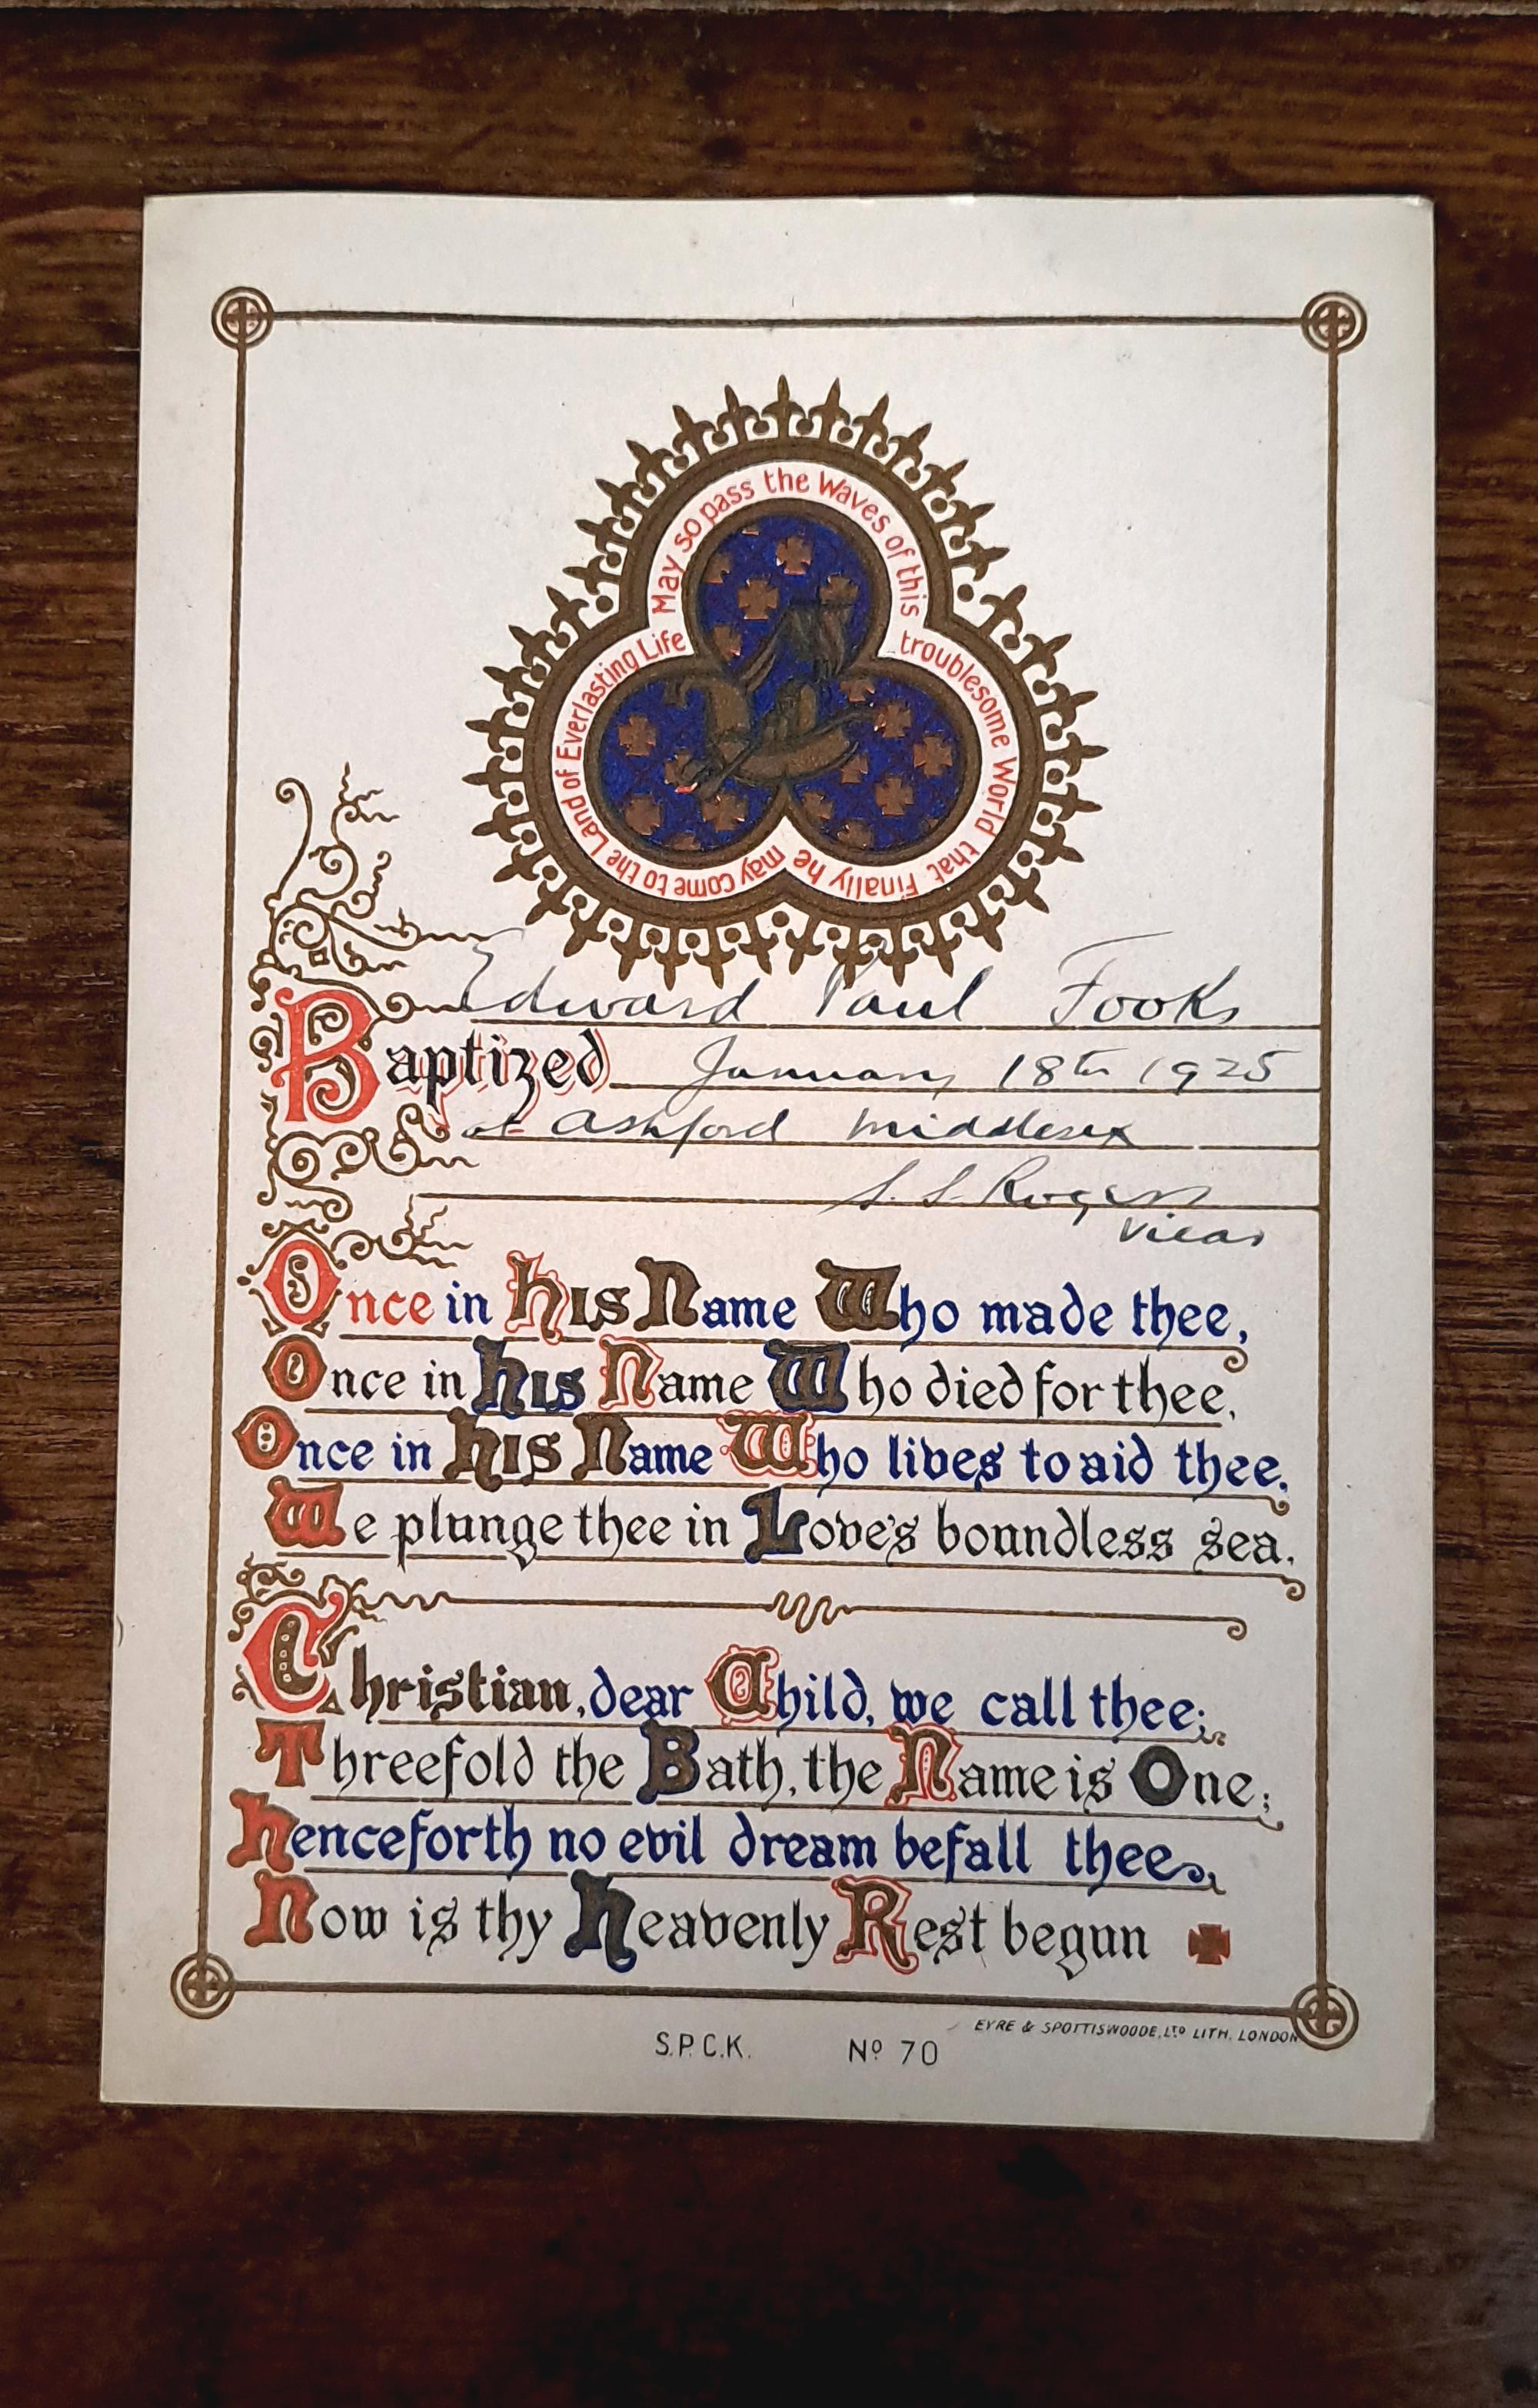 May so pass the Waves of this troublesome World that finally he may come to the Land of Everlasting Life
Edward Paul Fooks
Baptized January 18th 1925
at Ashford Middlesex
S. S. Rogers
Vicar
Once in his Name Who made thee,
Once in his Name Who died for thee,
Once in his Name Who lives to aid thee,
We plunge thee in Love's boundless sea.
Christian, dear Child, we call thee;
Threefold the Bath, the Name is One;
henceforth no evil dream befall thee,
Now is thy heavenly Rest begun
S.P.C.K. No 70
EYRE & SPOTTISWOODE, LTD LITH. LONDON